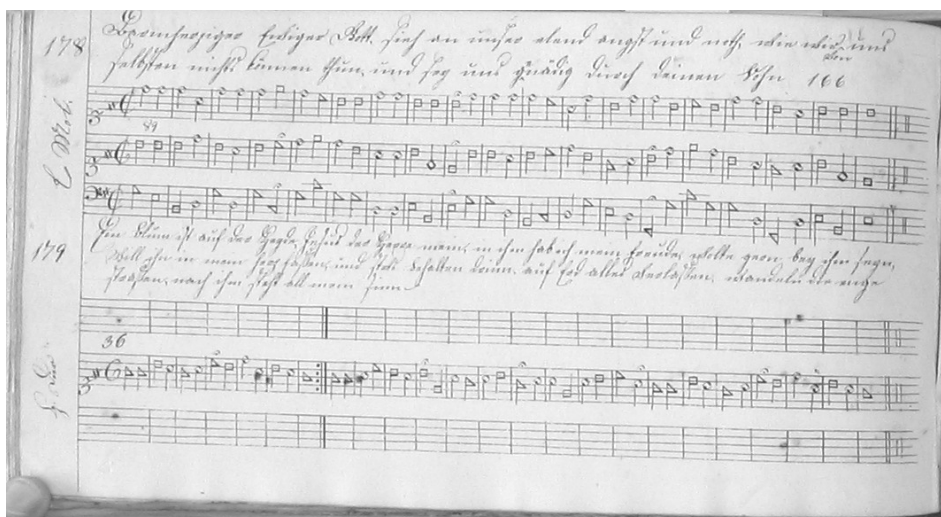 178 Barmherziger Ewiger Gott. sieh an unser elend angst und noth, wie wir uns
selbsten nichts können thun, und sey uns gnädig durch deinen Sohn 166
89
179 Ein Blum ist auf der Heyde, Jesus der Herre mein, in ihm hab ich mein freude, wolte gern bey ihm seyn,
Will ihn in mein herz fassen, und stets behalten drinn, auf Erd alles verlassen, wandeln die enge
strassen, nach ihm steht all mein sinn
36